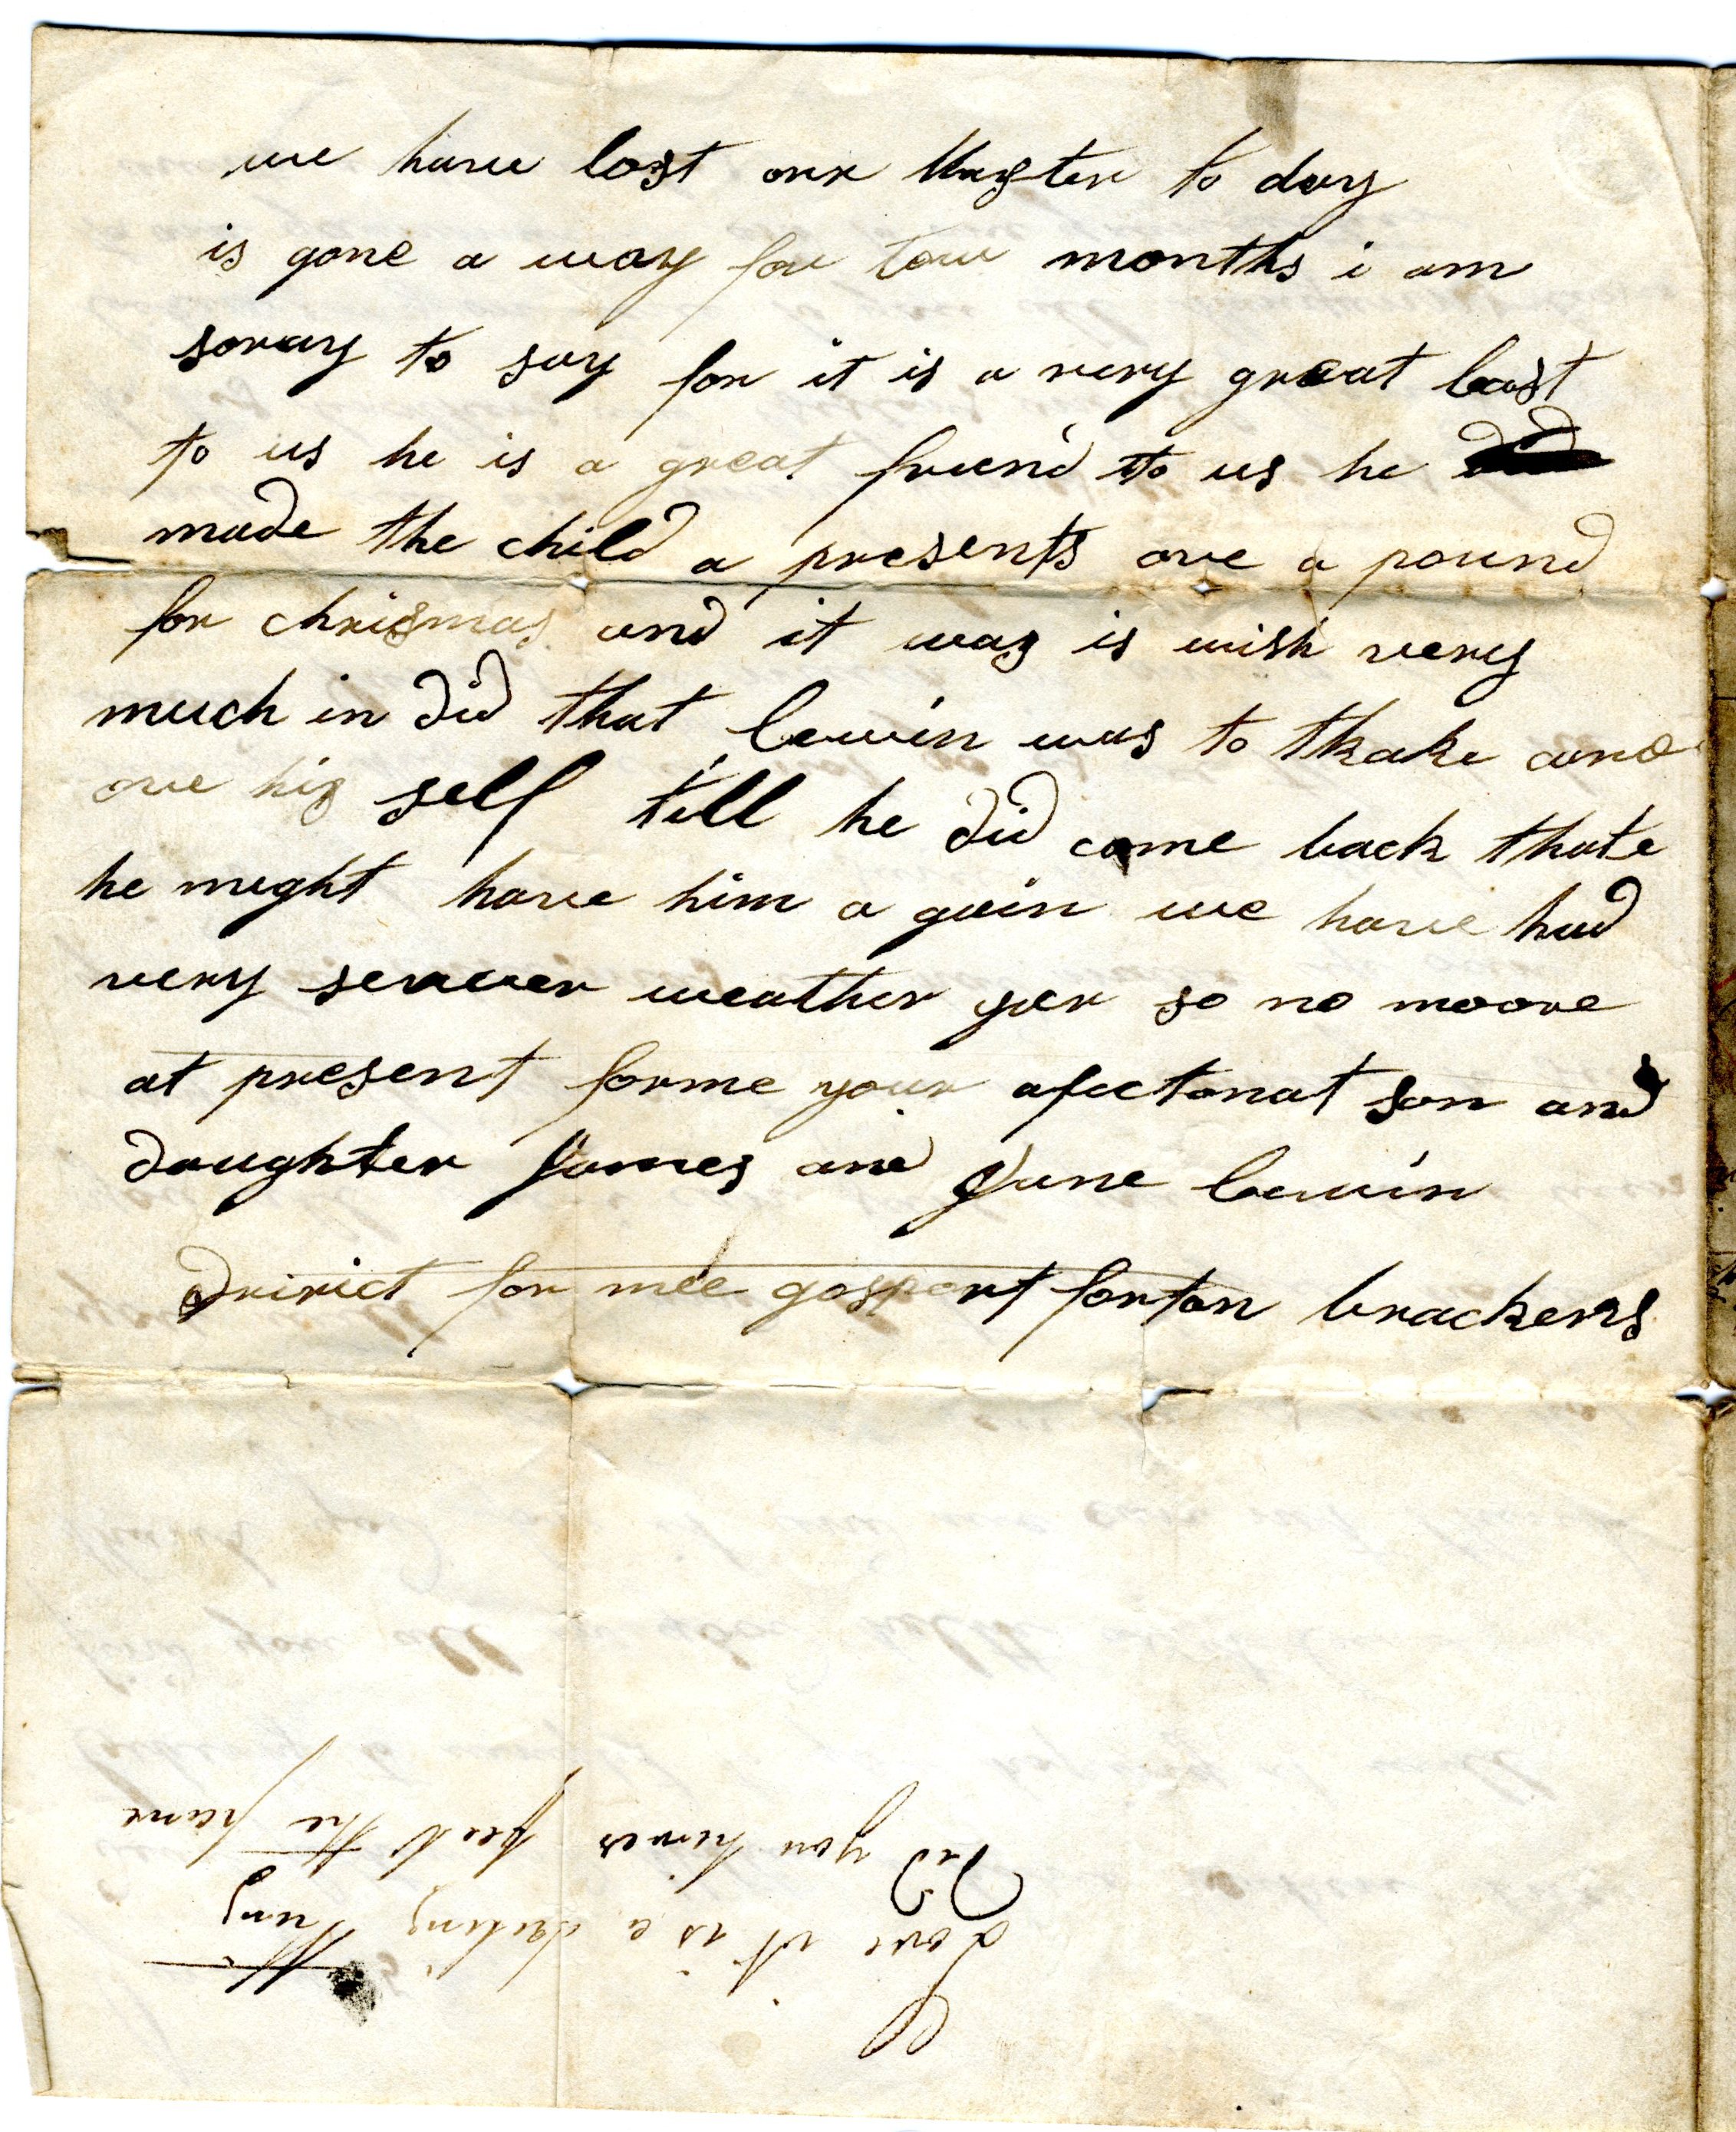 we have lost our Master to day
is gone a way for tow months i am
soray to say for it is a very great lost
to us he is a great friend to us he did
made the child a presents ove a pound
for chrismas and it was is wish very
much in did that lewin was to thake care
ove his self till he did come back thate
he meght have him a gain we have had
very sevever weather yer so no moore
at present forme your afectonat son and
daughter James and Jane lewin
Dririct for mee gosport forton brackers
Love it is a thing
Did you never feel the